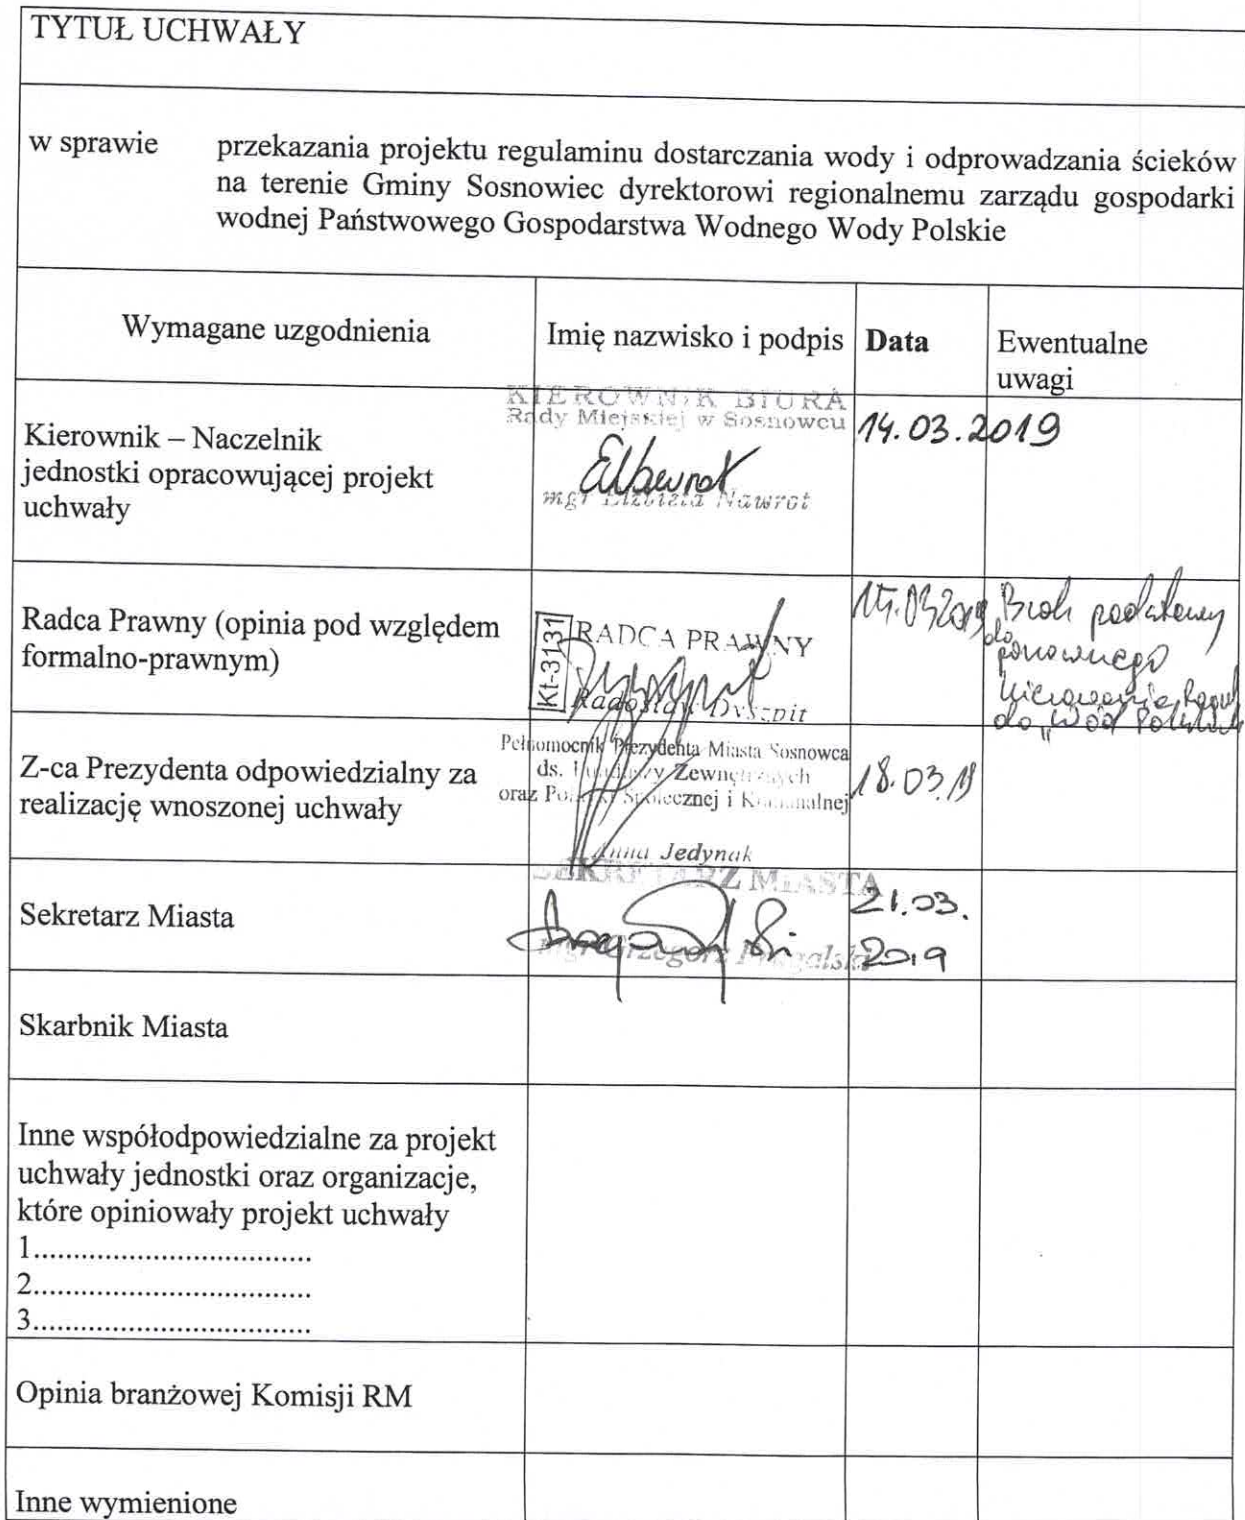 TYTUŁ UCHWAŁY
w sprawie przekazania projektu regulaminu dostarczania wody i odprowadzania ścieków
na terenie Gminy Sosnowiec dyrektorowi regionalnemu zarządu gospodarki
wodnej Państwowego Gospodarstwa Wodnego Wody Polskie
Wymagane uzgodnienia Imię nazwisko i podpis Data Ewentualne
uwagi
KIEROWNIK BIURA
Rady Miejskiej w Sosnowcu
14.03.2019
Kierownik – Naczelnik
jednostki opracowującej projekt
uchwały
mgr Elżbieta Nawrot
Radca Prawny (opinia pod względem
formalno-prawnym)
Kt-3131
RADCA PRAWNY
Radosław Dyszpit
Brak podstawy
do
ponownego
do "Wód Polskich
Z-ca Prezydenta odpowiedzialny za
realizację wnoszonej uchwały
Pełnomocnik Prezydenta Miasta Sosnowca
ds. Zewnętrznych
oraz Społecznej i Komunalnej
Anna Jedynak
18.03.19
Sekretarz Miasta
SEKRETARZ MIASTA
mgr Grzegorz
21.03.
2019
Skarbnik Miasta
Inne współodpowiedzialne za projekt
uchwały jednostki oraz organizacje,
które opiniowały projekt uchwały
1..................................
2..................................
3..................................
Opinia branżowej Komisji RM
Inne wymienione